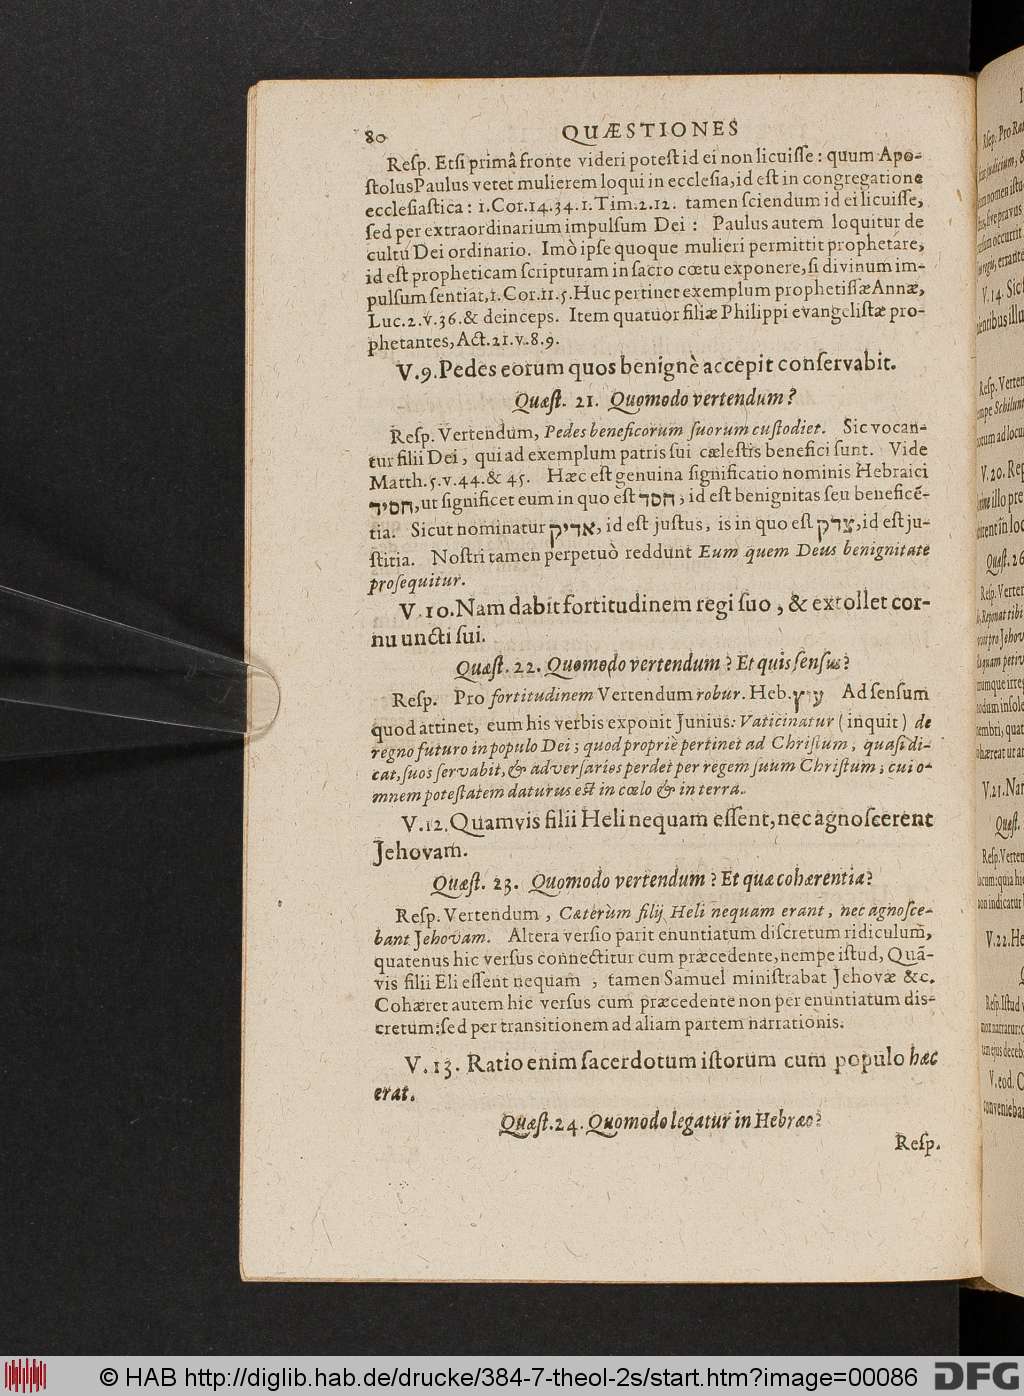 80 QUÆSTIONES
Reſp. Etſi primâ fronte videri poteſt id ei non licuiſſe: quum Apo-
ſtolus Paulus vetet mulierem loqui in eccleſia, id eſt in congregatione
eccleſiaſtica: 1. Cor. 14. 34. 1. Tim. 2. 12. tamen ſciendum id ei licuiſſe,
ſed per extraordinarium impulſum Dei: Paulus autem loquitur de
cultu Dei ordinario. Imò ipſe quoque mulieri permittit prophetare,
id eſt propheticam ſcripturam in ſacro cœtu exponere, ſi divinum im-
pulſum ſentiat, 1. Cor. 11. 5. Huc pertinet exemplum prophetiſſæ Annæ,
Luc. 2. v. 36. & deinceps. Item quatuor filiæ Philippi evangeliſtæ pro-
phetantes, Act. 21. v. 8. 9.
V. 9. Pedes eorum quos benignè accepit conſervabit.
Quæſt. 21. Quomodo vertendum?
Reſp. Vertendum, Pedes beneficorum ſuorum cuſtodiet. Sic vocan-
tur filii Dei, qui ad exemplum patris ſui cæleſtis benefici ſunt. Vide
Matth. 5. v. 44. & 45. Hæc eſt genuina ſignificatio nominis Hebraici
חסיד, ut ſignificet eum in quo eſt חסד, id eſt benignitas ſeu beneficē-
tia. Sicut nominatur צדיק, id eſt juſtus, is in quo eſt צדק, id eſt ju-
ſtitia. Noſtri tamen perpetuò reddunt Eum quem Deus benignitate
proſequitur.
V. 10. Nam dabit fortitudinem regi ſuo, & extollet cor-
nu uncti ſui.
Quæſt. 22. Quomodo vertendum? Et quis ſenſus?
Reſp. Pro fortitudinem Vertendum robur. Heb. Ad ſenſum
quod attinet, eum his verbis exponit Junius: Vaticinatur (inquit) de
regno futuro in populo Dei; quod propriè pertinet ad Chriſtum, quaſi di-
cat, ſuos ſervabit, & adverſarios perdet per regem ſuum Chriſtum; cui o-
mnem poteſtatem daturus eſt in cœlo & in terra.
V. 12. Quamvis filii Heli nequam eſſent, nec agnoſcerent
Jehovam.
Quæſt. 23. Quomodo vertendum? Et quæ cohærentia?
Reſp. Vertendum, Cæterùm filij Heli nequam erant, nec agnoſce-
bant Jehovam. Altera verſio parit enuntiatum diſcretum ridiculum,
quatenus hic verſus connectitur cum præcedente, nempe iſtud, Quā-
vis filii Eli eſſent nequam, tamen Samuel miniſtrabat Jehovæ &c.
Cohæret autem hic verſus cum præcedente non per enuntiatum diſ-
cretum: ſed per tranſitionem ad aliam partem narrationis.
V. 13. Ratio enim ſacerdotum iſtorum cum populo hæc
erat.
Quæſt. 24. Quomodo legatur in Hebræo?
Reſp.
© HAB http://diglib.hab.de/drucke/384-7-theol-2s/start.htm?image=00086
DFG